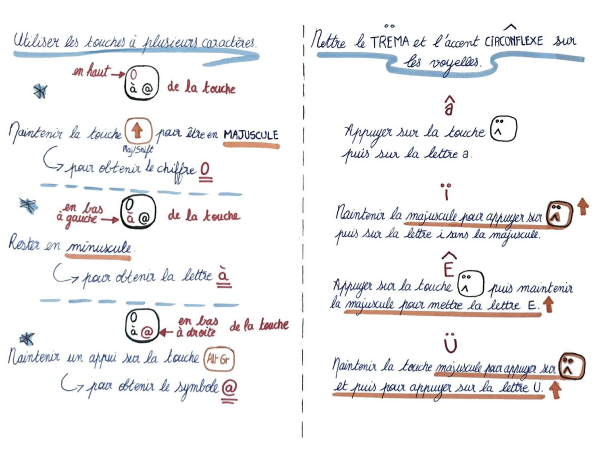 Utiliser les touches à plusieurs caractères.
en haut → 0 de la touche
à @
Maintenir la touche pour être en MAJUSCULE
Maj/Shift
pour obtenir le chiffre 0
en bas à gauche → 0 de la touche
à @
Rester en minuscule.
pour obtenir la lettre à
0 en bas à droite de la touche
à @
Maintenir un appui sur la touche Alt Gr
pour obtenir le symbole @
Mettre le TRËMA et l'accent CIRCONFLEXE sur
les voyelles.
â
Appuyer sur la touche ¨ ^
puis sur la lettre a.
ï
Maintenir la majuscule pour appuyer sur ¨ ^
puis sur la lettre i sans la majuscule.
Ê
Appuyer sur la touche ¨ ^ puis maintenir
la majuscule pour mettre la lettre E.
Ü
Maintenir la touche majuscule pour appuyer sur ¨ ^
et puis pour appuyer sur la lettre U.